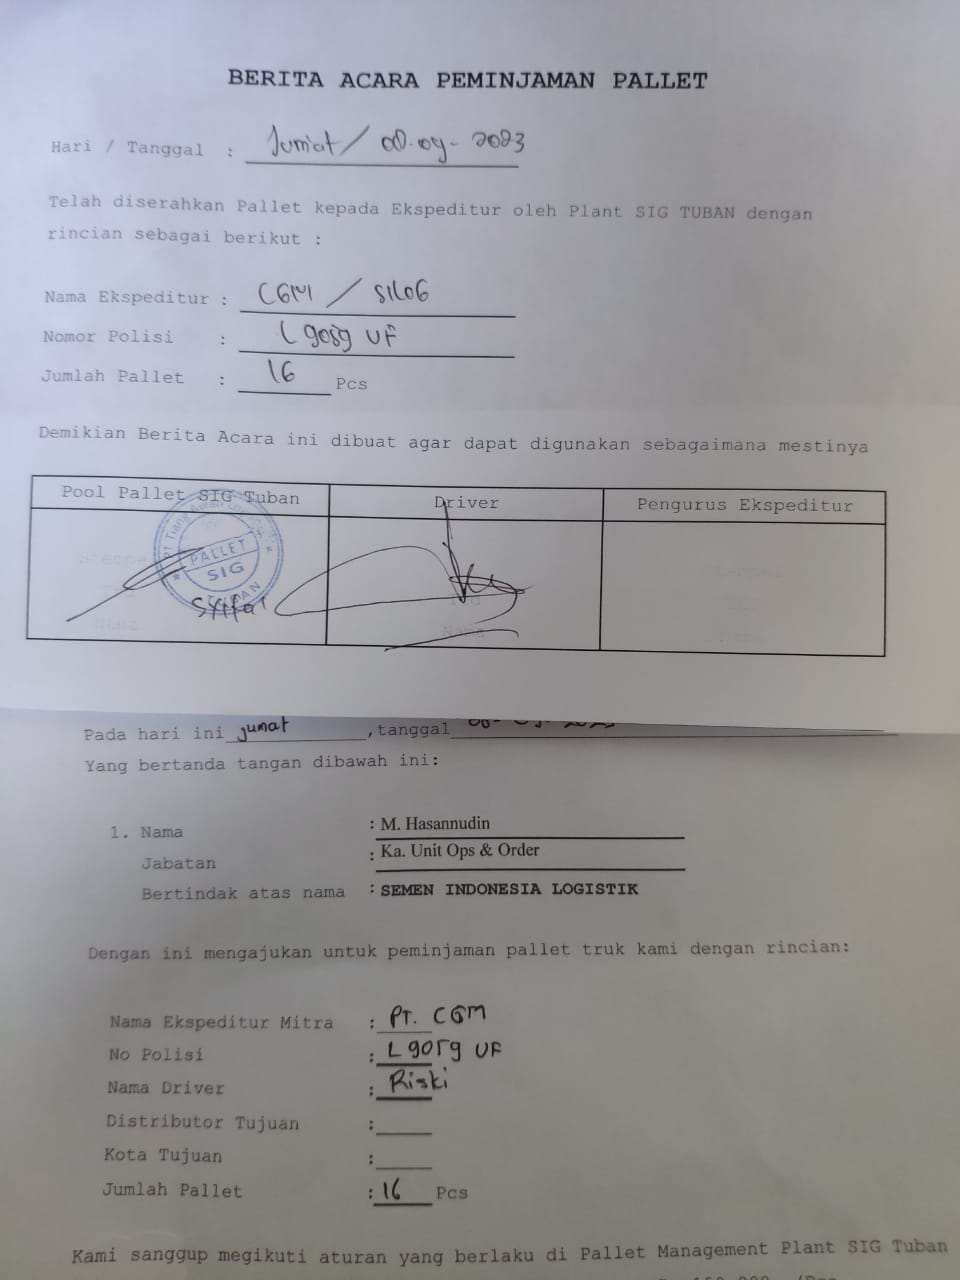 BERITA ACARA PEMINJAMAN PALLET
Hari / Tanggal : Jum'at / 08-09-2023
Telah diserahkan Pallet kepada Ekspeditur oleh Plant SIG TUBAN dengan
rincian sebagai berikut :
Nama Ekspeditur : CGM / SILOG
Nomor Polisi : L 9059 UF
Jumlah Pallet : 16 Pcs
Demikian Berita Acara ini dibuat agar dapat digunakan sebagaimana mestinya
Pool Pallet SIG Tuban Driver Pengurus Ekspeditur
PALLET
SIG
TUBAN
Nama
Pada hari ini jumat ,tanggal
Yang bertanda tangan dibawah ini:
1. Nama : M. Hasannudin
Jabatan : Ka. Unit Ops & Order
Bertindak atas nama : SEMEN INDONESIA LOGISTIK
Dengan ini mengajukan untuk peminjaman pallet truk kami dengan rincian:
Nama Ekspeditur Mitra : PT. CGM
No Polisi : L 9059 UF
Nama Driver : Riski
Distributor Tujuan :
Kota Tujuan :
Jumlah Pallet : 16 Pcs
Kami sanggup megikuti aturan yang berlaku di Pallet Management Plant SIG Tuban